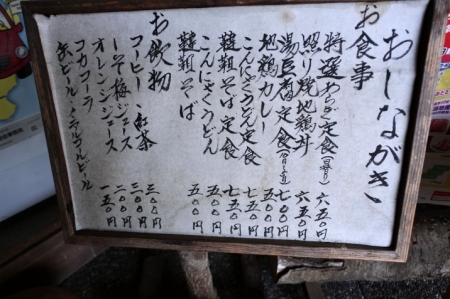 おしながき
お食事
特選わらじ定食 六五〇円
照り焼地鶏丼 六五〇円
湯豆腐定食 七〇〇円
地鶏カレー 五〇〇円
こんにゃくうどん定食 七五〇円
韃靼そば定食 七五〇円
こんにゃくうどん 五〇〇円
韃靼そば 五〇〇円
お飲物
コーヒー・紅茶 三〇〇円
しそ梅ジュース 三〇〇円
オレンジジュース 二〇〇円
コカコーラ 一五〇円
缶ビール・ノンアルコールビール